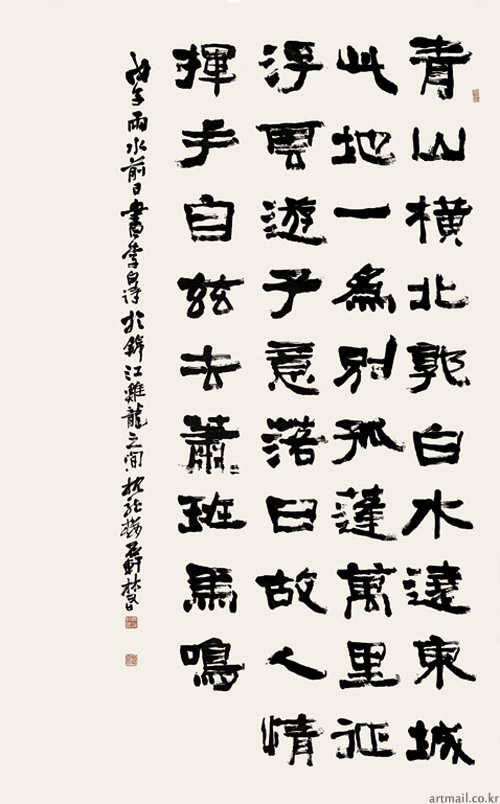 青山橫北郭白水遶東城
此地一爲別孤蓬萬里征
浮雲遊子意落日故人情
揮手自玆去蕭班馬鳴
戊子雨水前日書李白詩於錦江雞龍之間
artmail.co.kr